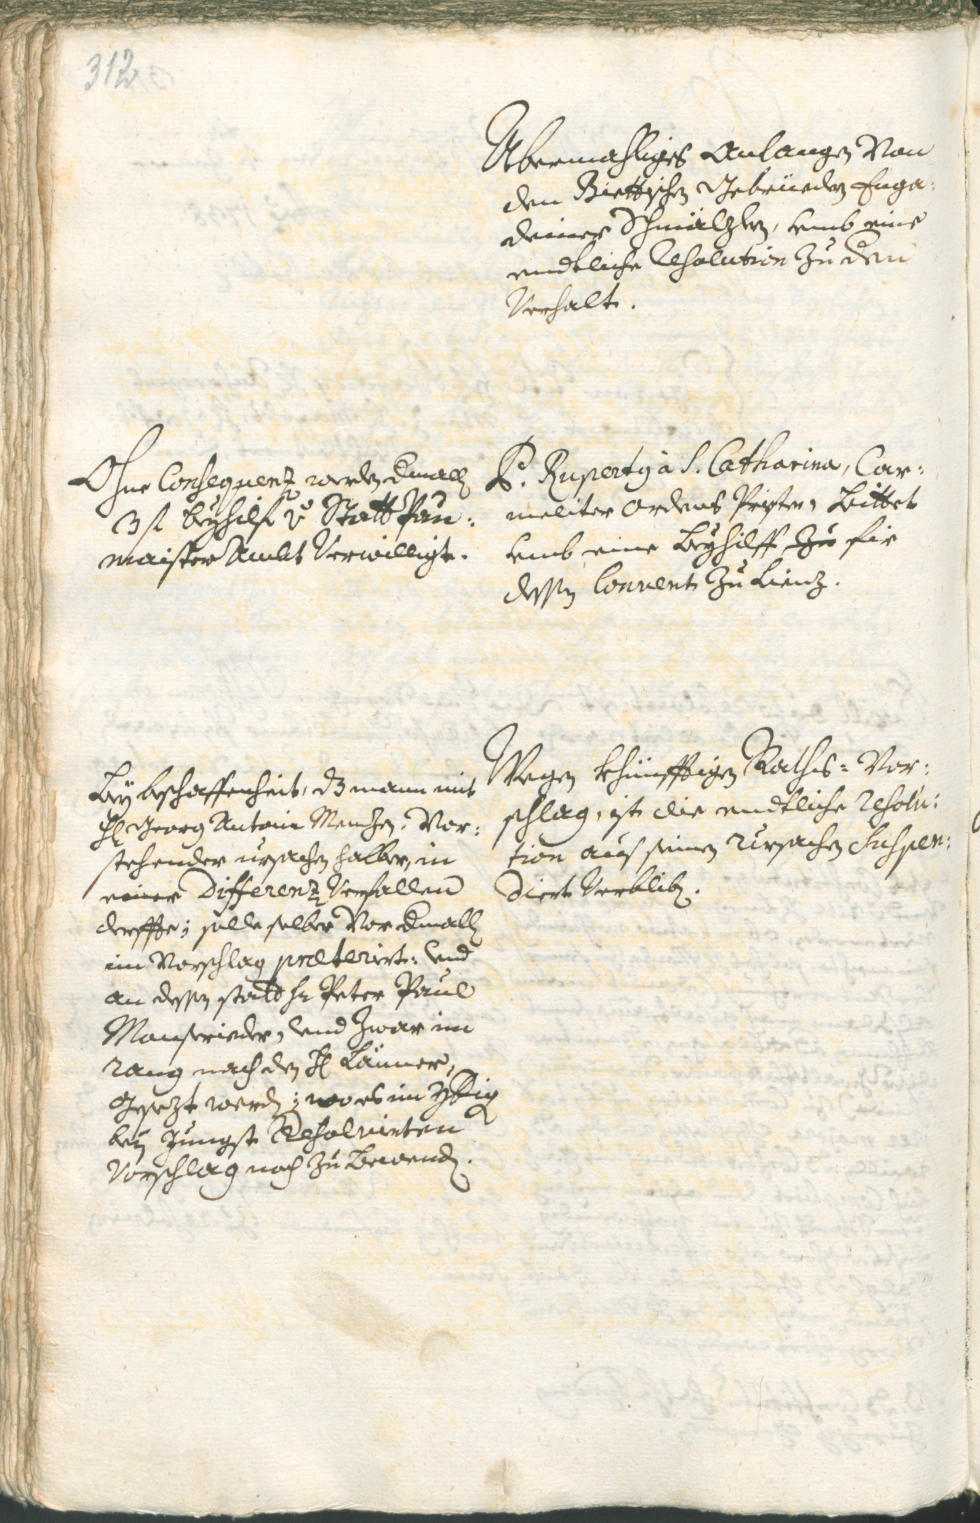 312
Abermahliges Anlangen Von
den Biettischen Gebrüeder Enga¬
deiner Schmälzler, umb eine
endtliche Resolution Zu den
Verhalt.
Ohne Consequenz werden dmall
3 fl beyhilf v Statt Pau¬
maister Ambt Verwilligt.
P. Ruperty à S. Catharina, Car¬
meliter Ordens Priester, Bittet
umb eine Beyhilff Zu fir
dessen Convent Zu Lienz.
Bey beschaffenheit, dz mann mit
H Georg Antoni Menhen, Vor¬
stehender ursachen halber, in
einer Differenz Verfallen
derffte; solle selber Vor dmall
im Vorschlag præterirt: und
an dessen statt h Peter Paul
Manfrieder, und Zwar im
rang nach den H Länner,
Gesezt werd; wo es im ybrig
bey jungst Resolvirten
Vorschlag noch Zu Bewend.
Wegen khünfftigen Raths=Vor¬
schlag, ist die endtliche Resolu¬
tion auß seinen Ursachen Suspen¬
diert Verblib.